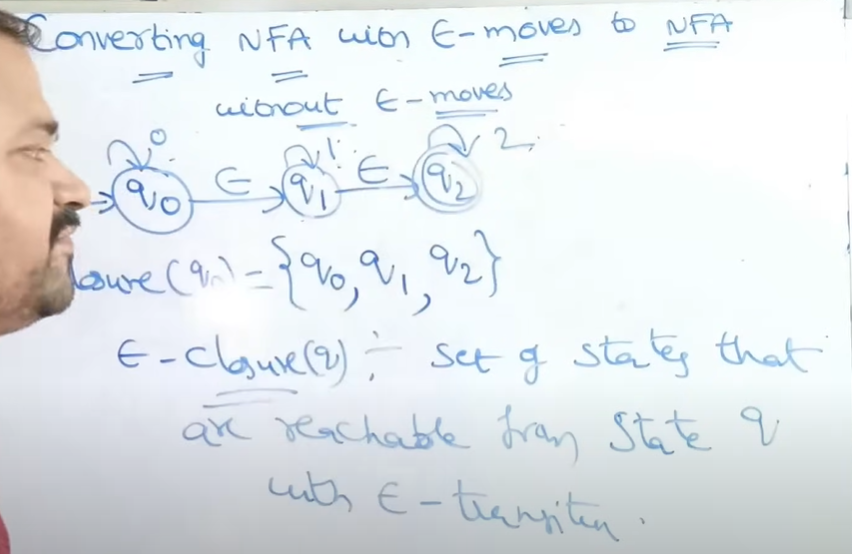 Converting NFA with ∈-moves to NFA
without ∈-moves
0 1 2
q0 ∈ q1 ∈ q2
losure(q0) = {q0, q1, q2}
∈-closure(q) :- set of states that
are reachable from state q
with ∈-transition.